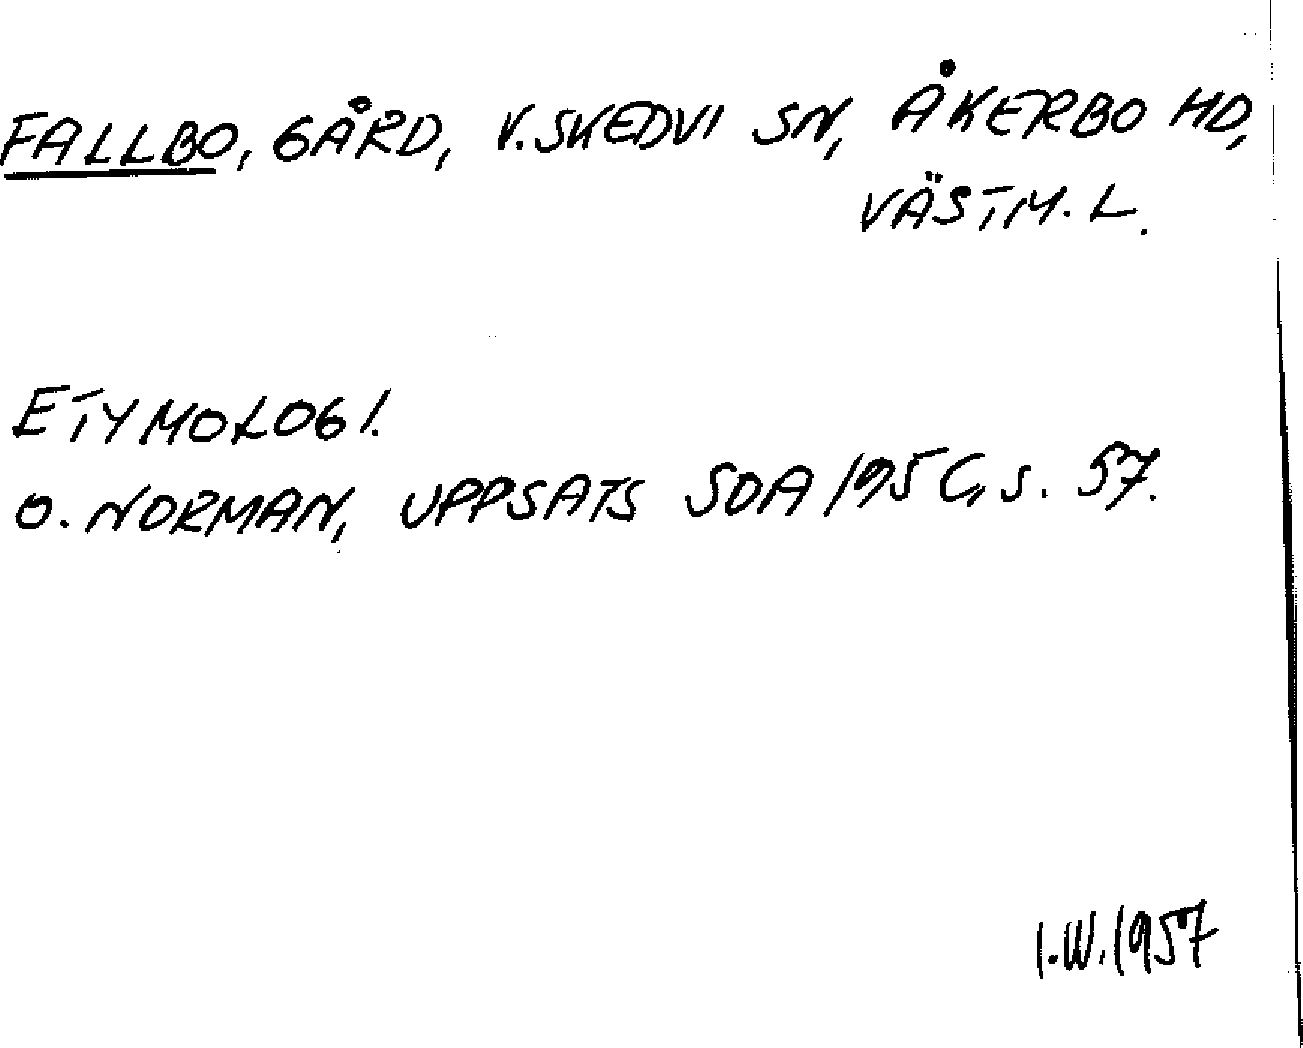 FALLBO, GÅRD, V. SKEDVI SN, ÅKERBO HD,
VÄSTM. L.
ETYMOLOGI.
O. NORMAN, UPPSATS SOA 195C, s. 57.
I.W. 1957